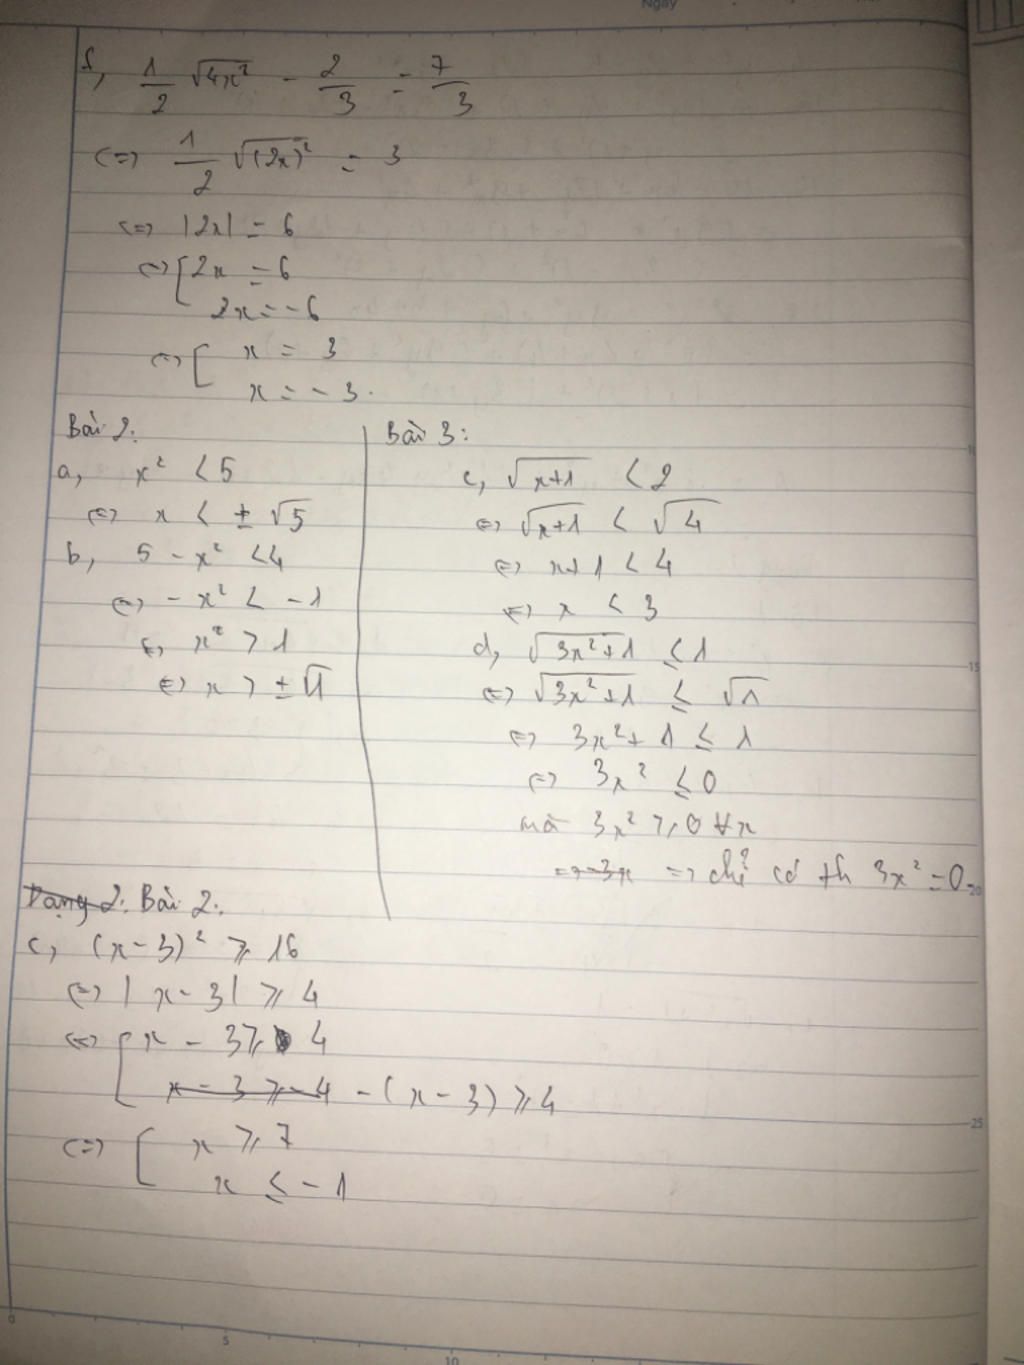 Ngày
f, 1/2 √4x² - 2/3 = 7/3
<=> 1/2 √(2x)² = 3
<=> |2x| = 6
<=> [ 2x = 6
2x = -6
<=> [ x = 3
x = -3.
Bài 2:
a, x² < 5
<=> x < ± √5
b, 5 - x² < 4
<=> - x² < - 1
<=> x² > 1
<=> x > ± √1
Bài 3:
c, √x+1 < 2
<=> √x+1 < √4
<=> x+1 < 4
<=> x < 3
d, √3x²+1 ≤ 1
<=> √3x²+1 ≤ √1
<=> 3x²+ 1 ≤ 1
<=> 3x² ≤ 0
mà 3x² ≥ 0 ∀x
=> -3x => chỉ có th 3x² = 0
Dạng 2: Bài 2:
c, (x-3)² ≥ 16
<=> | x - 3| ≥ 4
<=> [ x - 3 ≥ 4
x - 3 ≥ -4 -(x-3) ≥ 4
<=> [ x ≥ 7
x ≤ -1
15
20
25
0
5
10